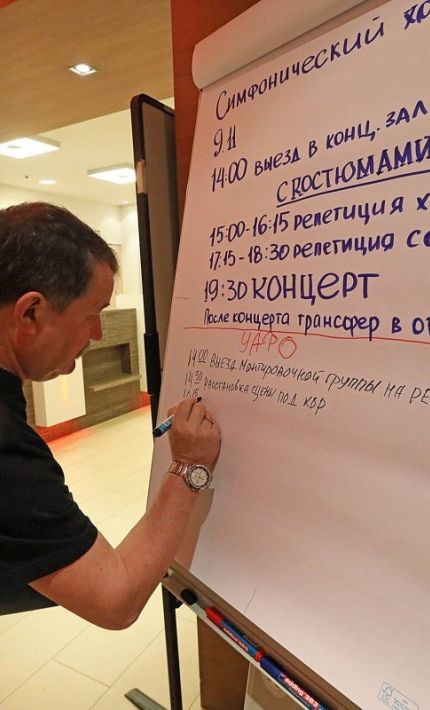 Симфонический хо
9 11
14:00 выезд в конц. зал
с костюмами
15:00-16:15 репетиция х
17:15-18:30 репетиция со
19:30 концерт
После концерта трансфер в от
УАРО
14 00 выезд монтировочной группы на ре
14 30 расстановка сцены под хор
edding 383
FSC